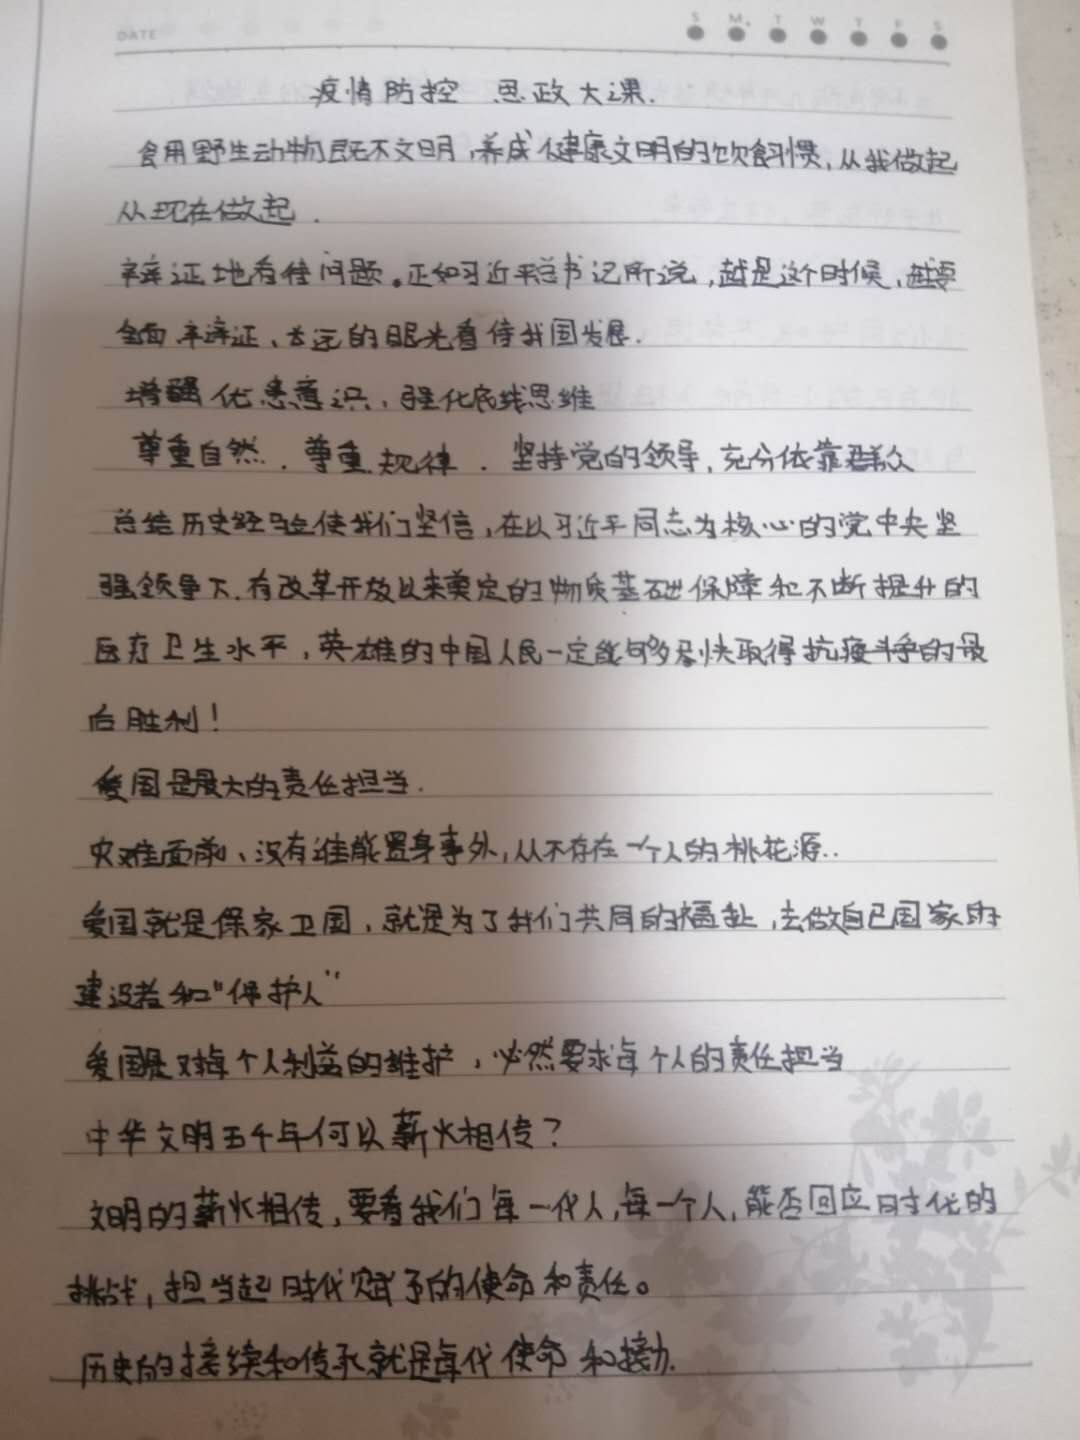 DATE
S M T W T F S
疫情防控 思政大课.
食用野生动物既不文明,养成健康文明的饮食习惯,从我做起
从现在做起.
辩证地看待问题。正如习近平总书记所说,越是这个时候,越要
全面辩证、长远的眼光看待我国发展.
增强优患意识,强化底线思维
尊重自然.尊重规律.坚持党的领导,充分依靠群众
总结历史经验使我们坚信,在以习近平同志为核心的党中央坚
强领导下.有改革开放以来奠定的物质基础保障和不断提升的
医疗卫生水平,英雄的中国人民一定能够尽快取得抗疫斗争的最
后胜利!
爱国是最大的责任担当.
灾难面前、没有谁能置身事外,从不存在一个人的桃花源..
爱国就是保家卫国,就是为了我们共同的福祉,去做自己国家的
建设者和“保护人”
爱国是对每个人利益的维护,必然要求每个人的责任担当
中华文明五千年何以薪火相传?
文明的薪火相传,要看我们每一代人,每一个人,能否回应时代的
挑战,担当起时代赋予的使命和责任。
历史的接续和传承就是每代使命和接力.